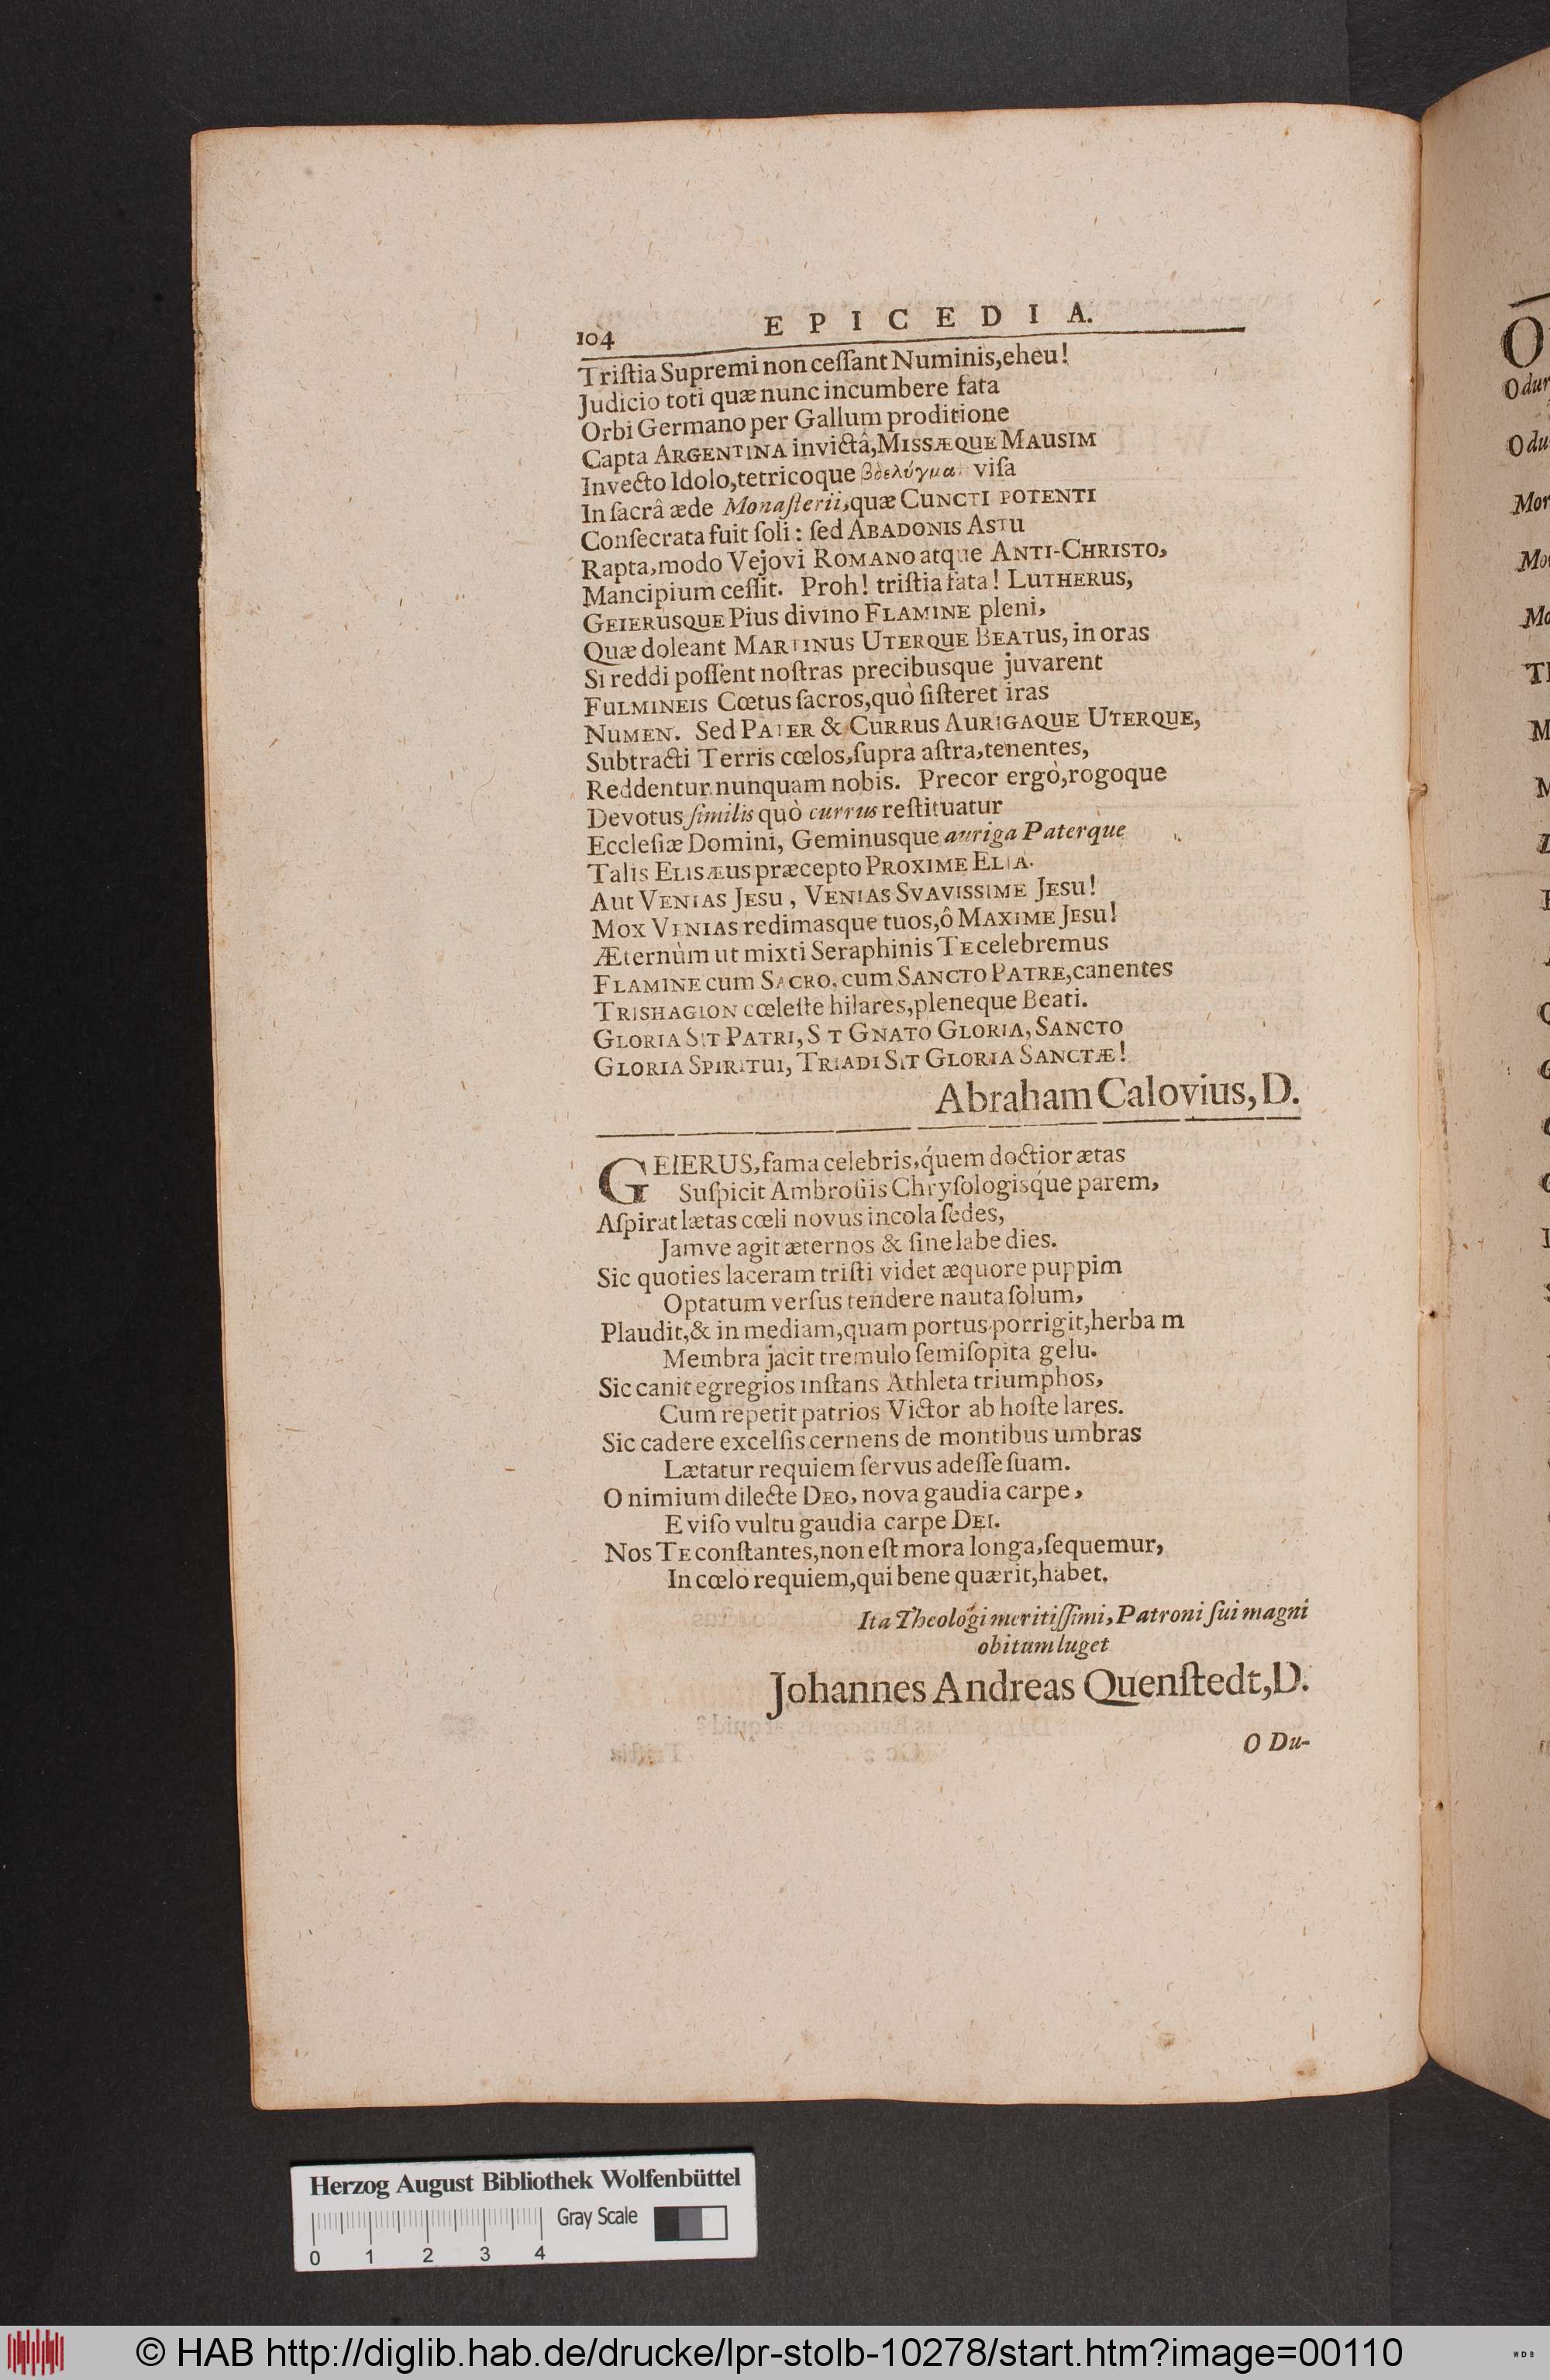 104 EPICEDIA.
Triſtia Supremi non ceſſant Numinis, eheu!
Judicio toti quæ nunc incumbere fata
Orbi Germano per Gallum proditione
Capta ARGENTINA invictâ, MISSÆQUE MAUSIM
Invecto Idolo, tetricoque βδελύγμα viſa
In ſacrâ æde Monaſterii, quæ CUNCTI POTENTI
Conſecrata fuit ſoli: ſed ABADONIS ASTU
Rapta, modo Vejovi ROMANO atque ANTI-CHRISTO,
Mancipium ceſſit. Proh! triſtia fata! LUTHERUS,
GEIERUSQUE Pius divino FLAMINE pleni,
Quæ doleant MARTINUS UTERQUE BEATUS, in oras
Si reddi poſſent noſtras precibusque juvarent
FULMINEIS Cœtus ſacros, quò ſiſteret iras
NUMEN. Sed PATER & CURRUS AURIGAQUE UTERQUE,
Subtracti Terris cœlos, ſupra aſtra, tenentes,
Reddentur nunquam nobis. Precor ergò, rogoque
Devotus ſimilis quò currus reſtituatur
Eccleſiæ Domini, Geminusque auriga Paterque
Talis ELISÆUS præcepto PROXIME ELIA.
Aut VENIAS JESU, VENIAS SVAVISSIME JESU!
Mox VENIAS redimasque tuos, ô MAXIME JESU!
Æternùm ut mixti Seraphinis TE celebremus
FLAMINE cum SACRO, cum SANCTO PATRE, canentes
TRISHAGION cœleſte hilares, pleneque Beati.
GLORIA SIT PATRI, SIT GNATO GLORIA, SANCTO
GLORIA SPIRITUI, TRIADI SIT GLORIA SANCTÆ!
Abraham Calovius, D.
GEIERUS, fama celebris, q́uem doctior ætas
Suſpicit Ambroſiis Chryſologisq́ue parem,
Aſpirat lætas cœli novus incola ſedes,
Jamve agit æternos & ſine labe dies.
Sic quoties laceram triſti videt æquore puppim
Optatum verſus tendere nauta ſolum,
Plaudit, & in mediam, quam portus porrigit, herba m
Membra jacit tremulo ſemiſopita gelu.
Sic canit egregios inſtans Athleta triumphos,
Cum repetit patrios Victor ab hoſte lares.
Sic cadere excelſis cernens de montibus umbras
Lætatur requiem ſervus adeſſe ſuam.
O nimium dilecte DEO, nova gaudia carpe,
E viſo vultu gaudia carpe DEI.
Nos TE conſtantes, non eſt mora longa, ſequemur,
In cœlo requiem, qui bene quærit, habet.
Ita Theologi meritiſſimi, Patroni ſui magni
obitum luget
Johannes Andreas Quenſtedt, D.
O Du-
Herzog August Bibliothek Wolfenbüttel
Gray Scale
0 1 2 3 4
© HAB http://diglib.hab.de/drucke/lpr-stolb-10278/start.htm?image=00110